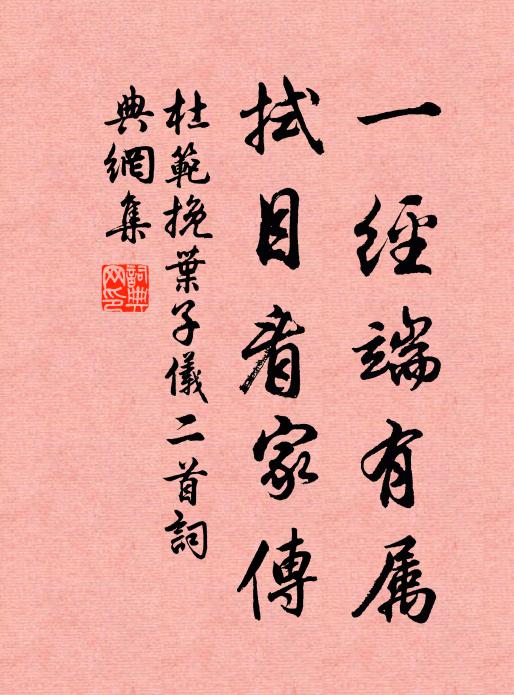 一經端有属
拭目看家傳
杜範挽葉子儀二首詞
典網集
詞典網印